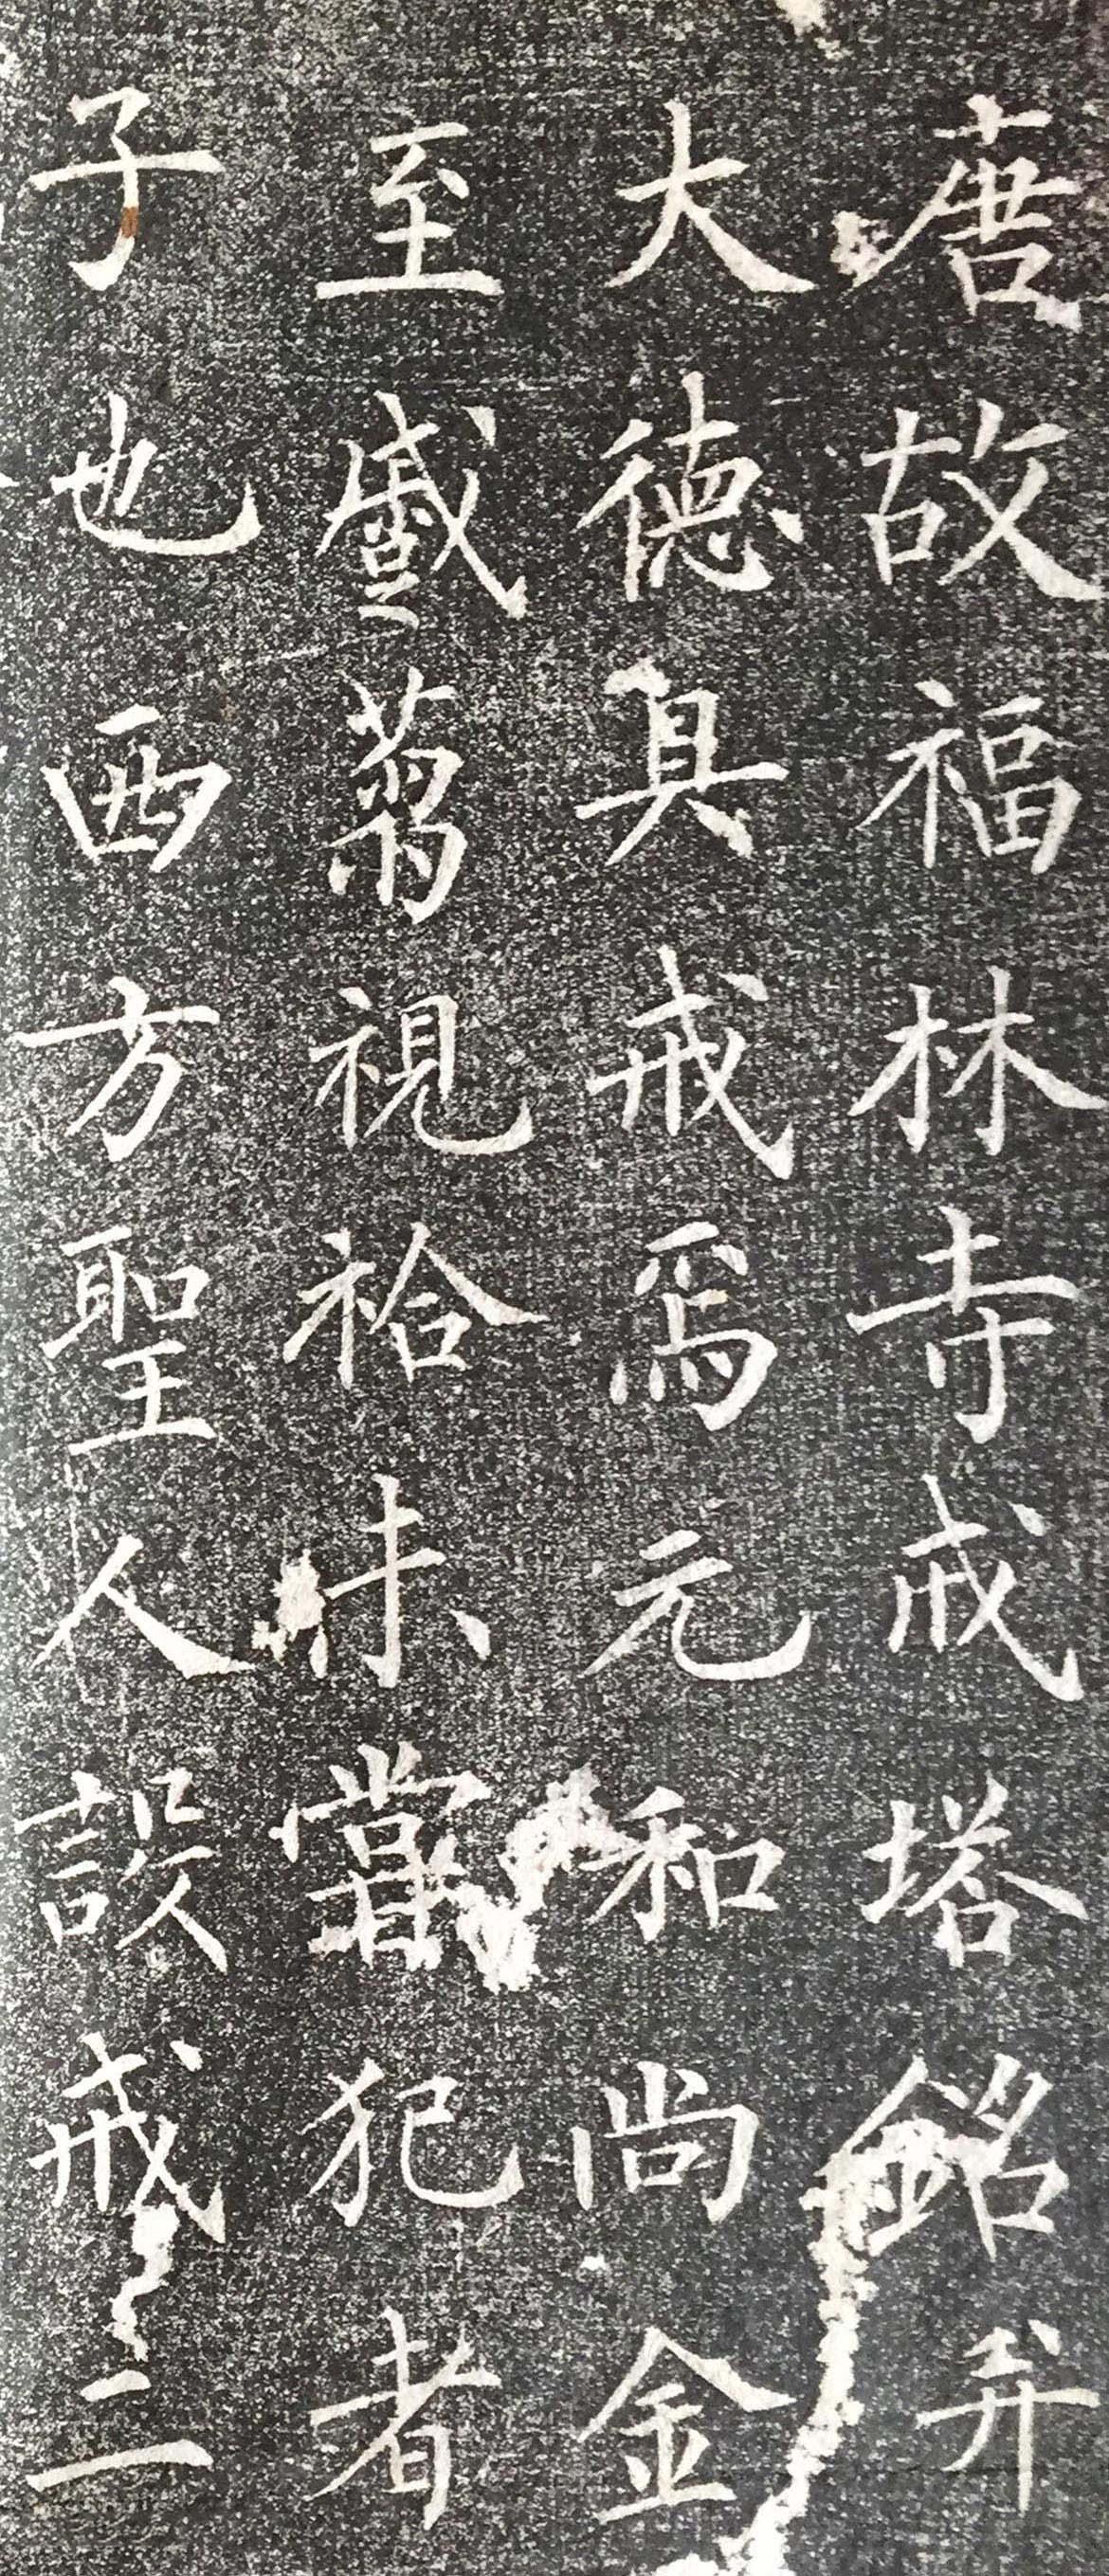 唐故福林寺戒塔銘并
大德具戒焉元和尚金
至視袷未嘗犯者
子也西方聖人設戒二